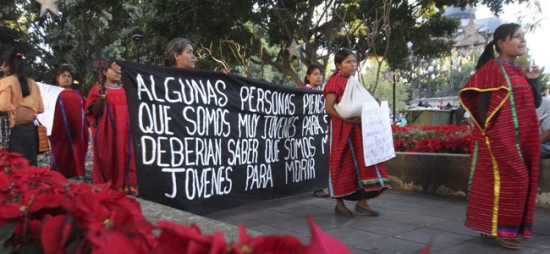 ALGUNAS PERSONAS
QUE SOMOS MUY JOVENES PARA
DEBERIAN SABER QUE SOMOS
JOVENES PARA MORIR